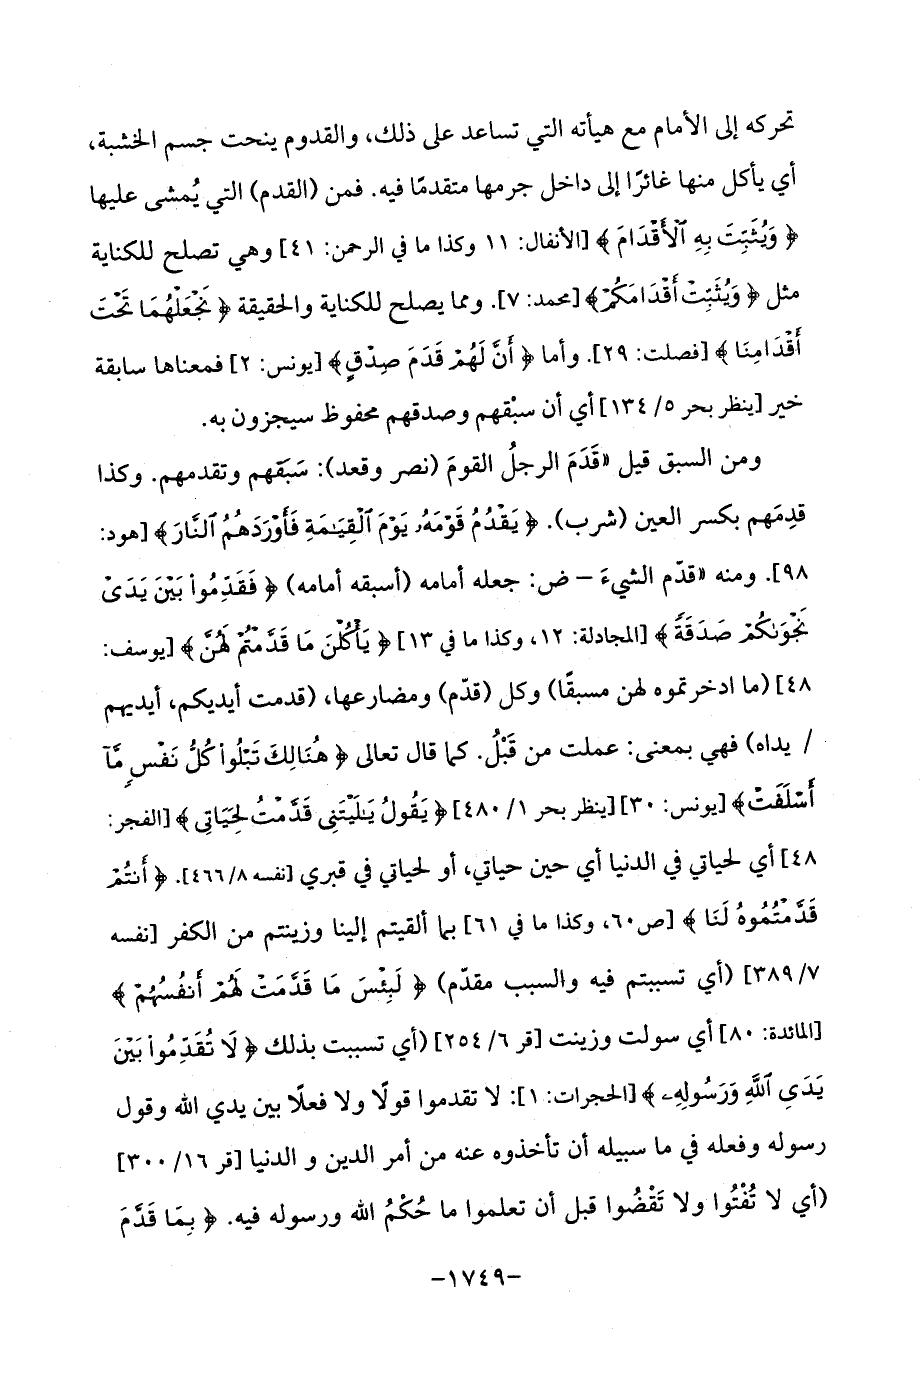 تحركه إلى الأمام مع هيأته التي تساعد على ذلك، والقدوم ينحت جسم الخشبة،
أي يأكل منها غائرًا إلى داخل جرمها متقدمًا فيه. فمن (القدم) التي يُمشى عليها
﴿ وَيُثَبِّتَ بِهِ ٱلْأَقْدَامَ ﴾ [الأنفال: ١١ وكذا ما في الرحمن: ٤١] وهي تصلح للكناية
مثل ﴿ وَيُثَبِّتْ أَقْدَامَكُمْ﴾ [محمد: ٧]. ومما يصلح للكناية والحقيقة ﴿ نَجْعَلْهُمَا تَحْتَ
أَقْدَامِنَا ﴾ [فصلت: ٢٩]. وأما ﴿ أَنَّ لَهُمْ قَدَمَ صِدْقٍ﴾ [يونس: ٢] فمعناها سابقة
خير [ينظر بحر ٥/ ١٣٤] أي أن سبْقهم وصدقهم محفوظ سيجزون به.
ومن السبق قيل «قَدَمَ الرجلُ القومَ (نصر وقعد): سَبَقَهم وتقدمهم. وكذا
قدِمَهم بكسر العين (شرب). ﴿ يَقْدُمُ قَوْمَهُۥ يَوْمَ ٱلْقِيَٰمَةِ فَأَوْرَدَهُمُ ٱلنَّارَ﴾ [هود:
٩٨]. ومنه «قدّم الشيءَ – ض: جعله أمامه (أسبقه أمامه) ﴿ فَقَدِّمُوا۟ بَيْنَ يَدَىْ
نَجْوَىٰكُمْ صَدَقَةً ﴾ [المجادلة: ١٢، وكذا ما في ١٣] ﴿ يَأْكُلْنَ مَا قَدَّمْتُمْ لَهُنَّ ﴾ [يوسف:
٤٨] (ما ادخرتموه لهن مسبقًا) وكل (قدّم) ومضارعها، (قدمت أيديكم، أيديهم
/ يداه) فهي بمعنى: عملت من قَبْلُ. كما قال تعالى ﴿ هُنَالِكَ تَبْلُوا۟ كُلُّ نَفْسٍ مَّآ
أَسْلَفَتْ﴾ [يونس: ٣٠][ينظر بحر ١/ ٤٨٠] ﴿ يَقُولُ يَٰلَيْتَنِى قَدَّمْتُ لِحَيَاتِى ﴾ [الفجر:
٤٨] أي لحياتي في الدنيا أي حين حياتي، أو لحياتي في قبري [نفسه ٨/ ٤٦٦]. ﴿ أَنتُمْ
قَدَّمْتُمُوهُ لَنَا ﴾ [ص٦٠، وكذا ما في ٦١] بما ألقيتم إلينا وزينتم من الكفر [نفسه
٧/ ٣٨٩] (أي تسببتم فيه والسبب مقدّم) ﴿ لَبِئْسَ مَا قَدَّمَتْ لَهُمْ أَنفُسُهُمْ ﴾
[المائدة: ٨٠] أي سولت وزينت [قر ٦/ ٢٥٤] (أي تسببت بذلك ﴿ لَا تُقَدِّمُوا۟ بَيْنَ
يَدَىِ ٱللَّهِ وَرَسُولِهِۦ ﴾ [الحجرات: ١]: لا تقدموا قولًا ولا فعلًا بين يدي الله وقول
رسوله وفعله في ما سبيله أن تأخذوه عنه من أمر الدين و الدنيا [قر ١٦/ ٣٠٠]
(أي لا تُفْتُوا ولا تَقْضُوا قبل أن تعلموا ما حُكْمُ الله ورسوله فيه. ﴿ بِمَا قَدَّمَ
-١٧٤٩-